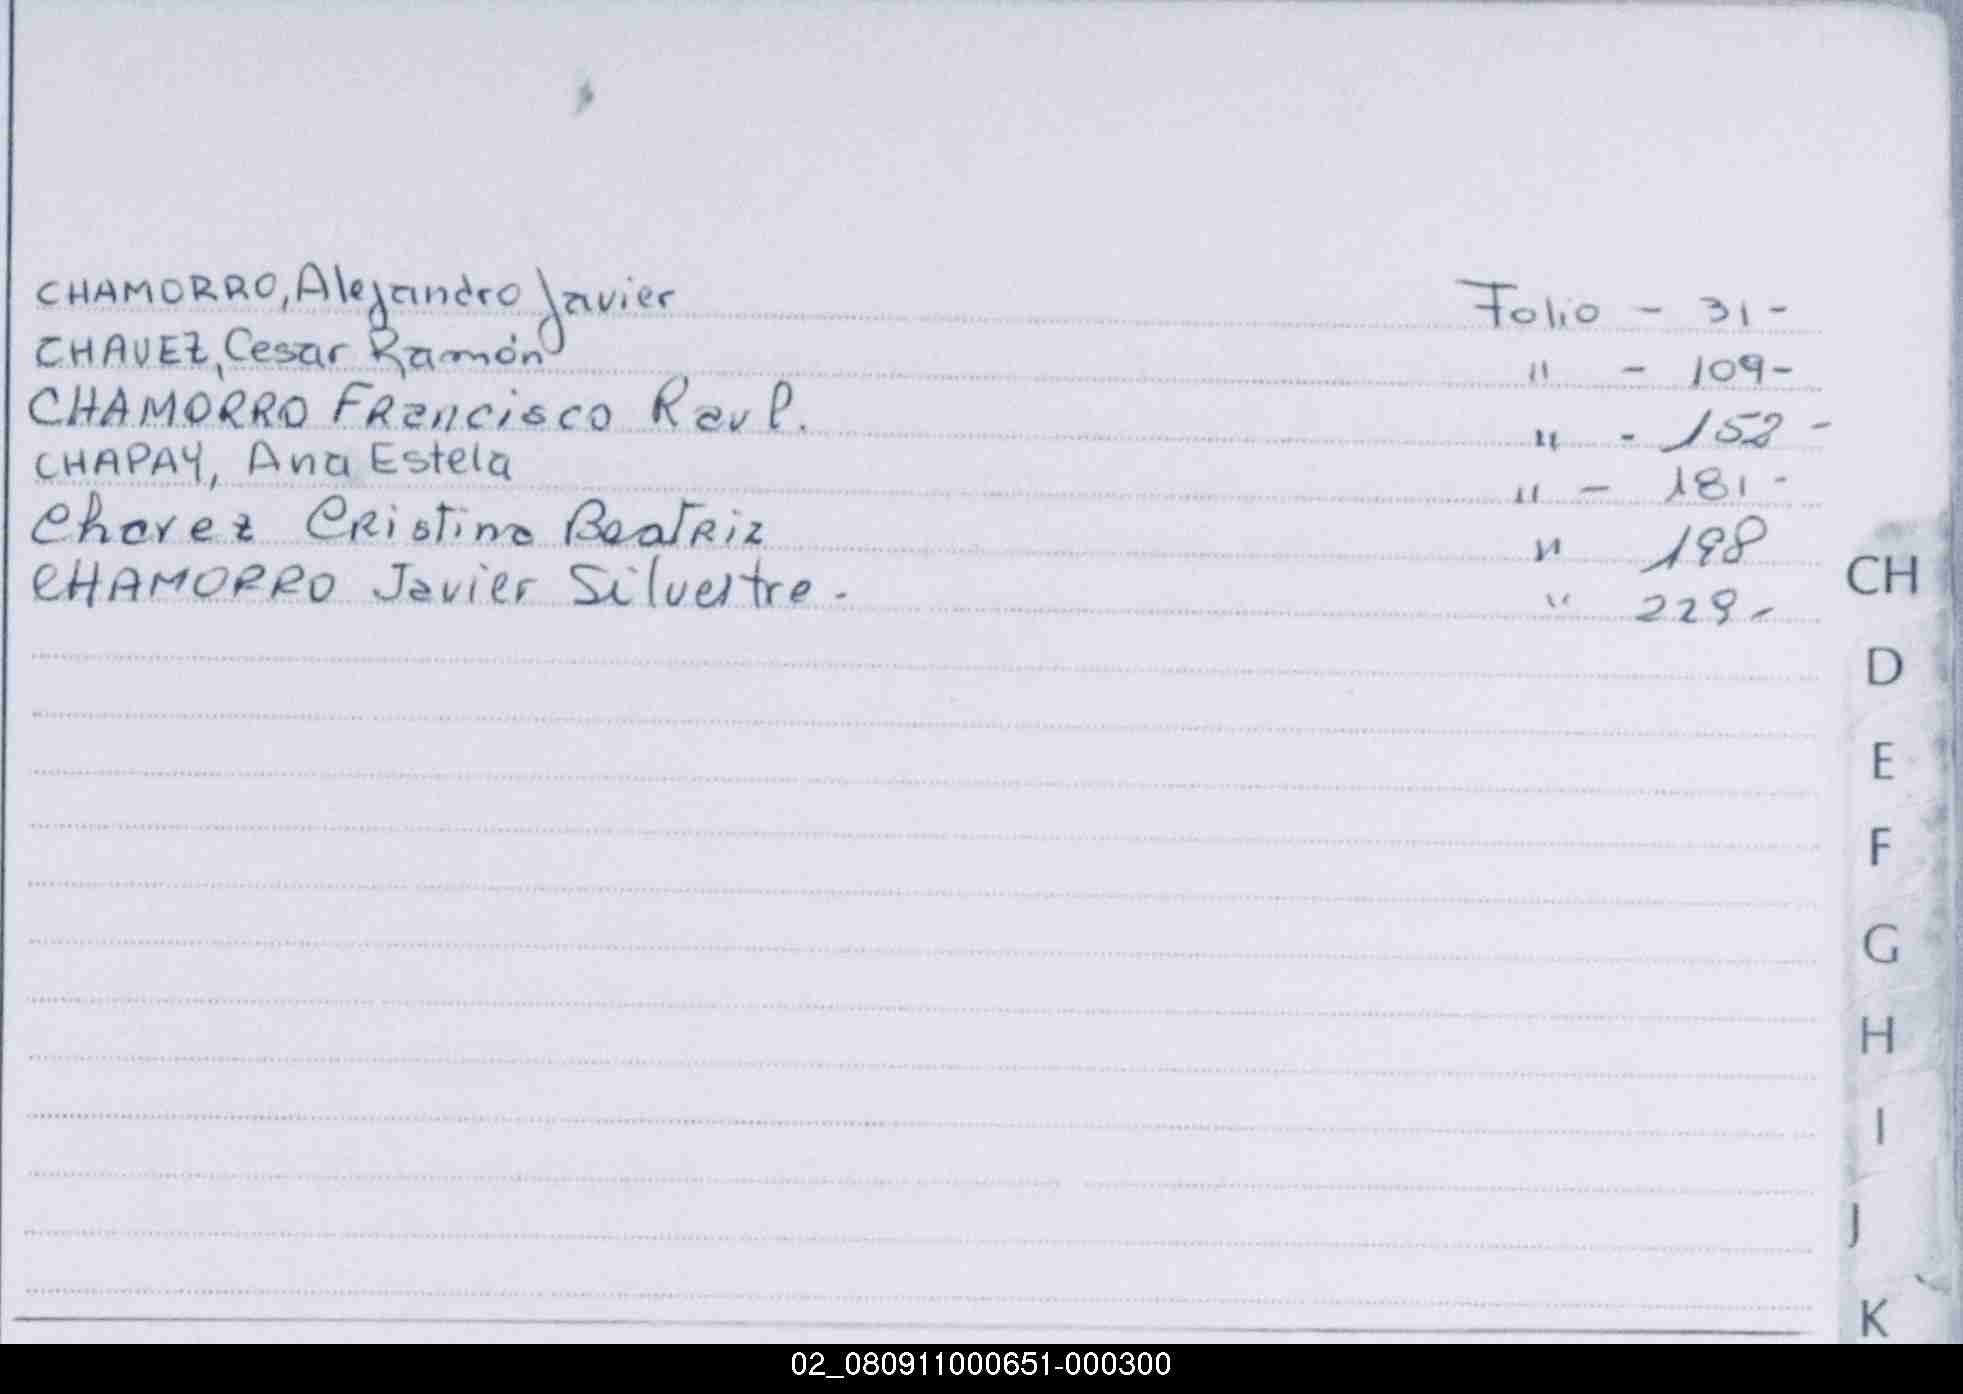 CHAMORRO, Alejandro Javier Folio - 31 -
CHAVEZ, Cesar Ramón " - 109 -
CHAMORRO Francisco Raul. " - 152 -
CHAPAY, Ana Estela " - 181 -
Chavez Cristina Beatriz " 198
CHAMORRO Javier Silvestre - " 229 -
CH
D
E
F
G
H
I
J
K
02_080911000651-000300